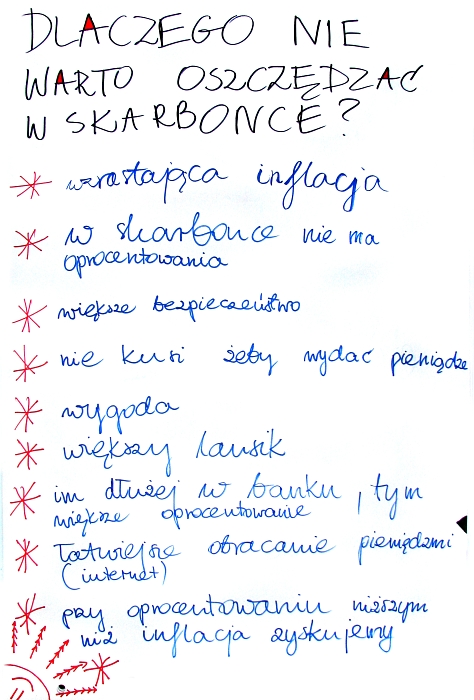 DLACZEGO NIE
WARTO OSZCZĘDZAĆ
W SKARBONCE?
wzrastająca inflacja
w skarbonce nie ma
oprocentowania
większe bezpieczeństwo
nie kusi żeby wydać pieniądze
wygoda
większy lansik
im dłużej w banku, tym
większe oprocentowanie
łatwiejsze obracanie pieniędzmi
(internet)
przy oprocentowaniu niższym
niż inflacja zyskujemy